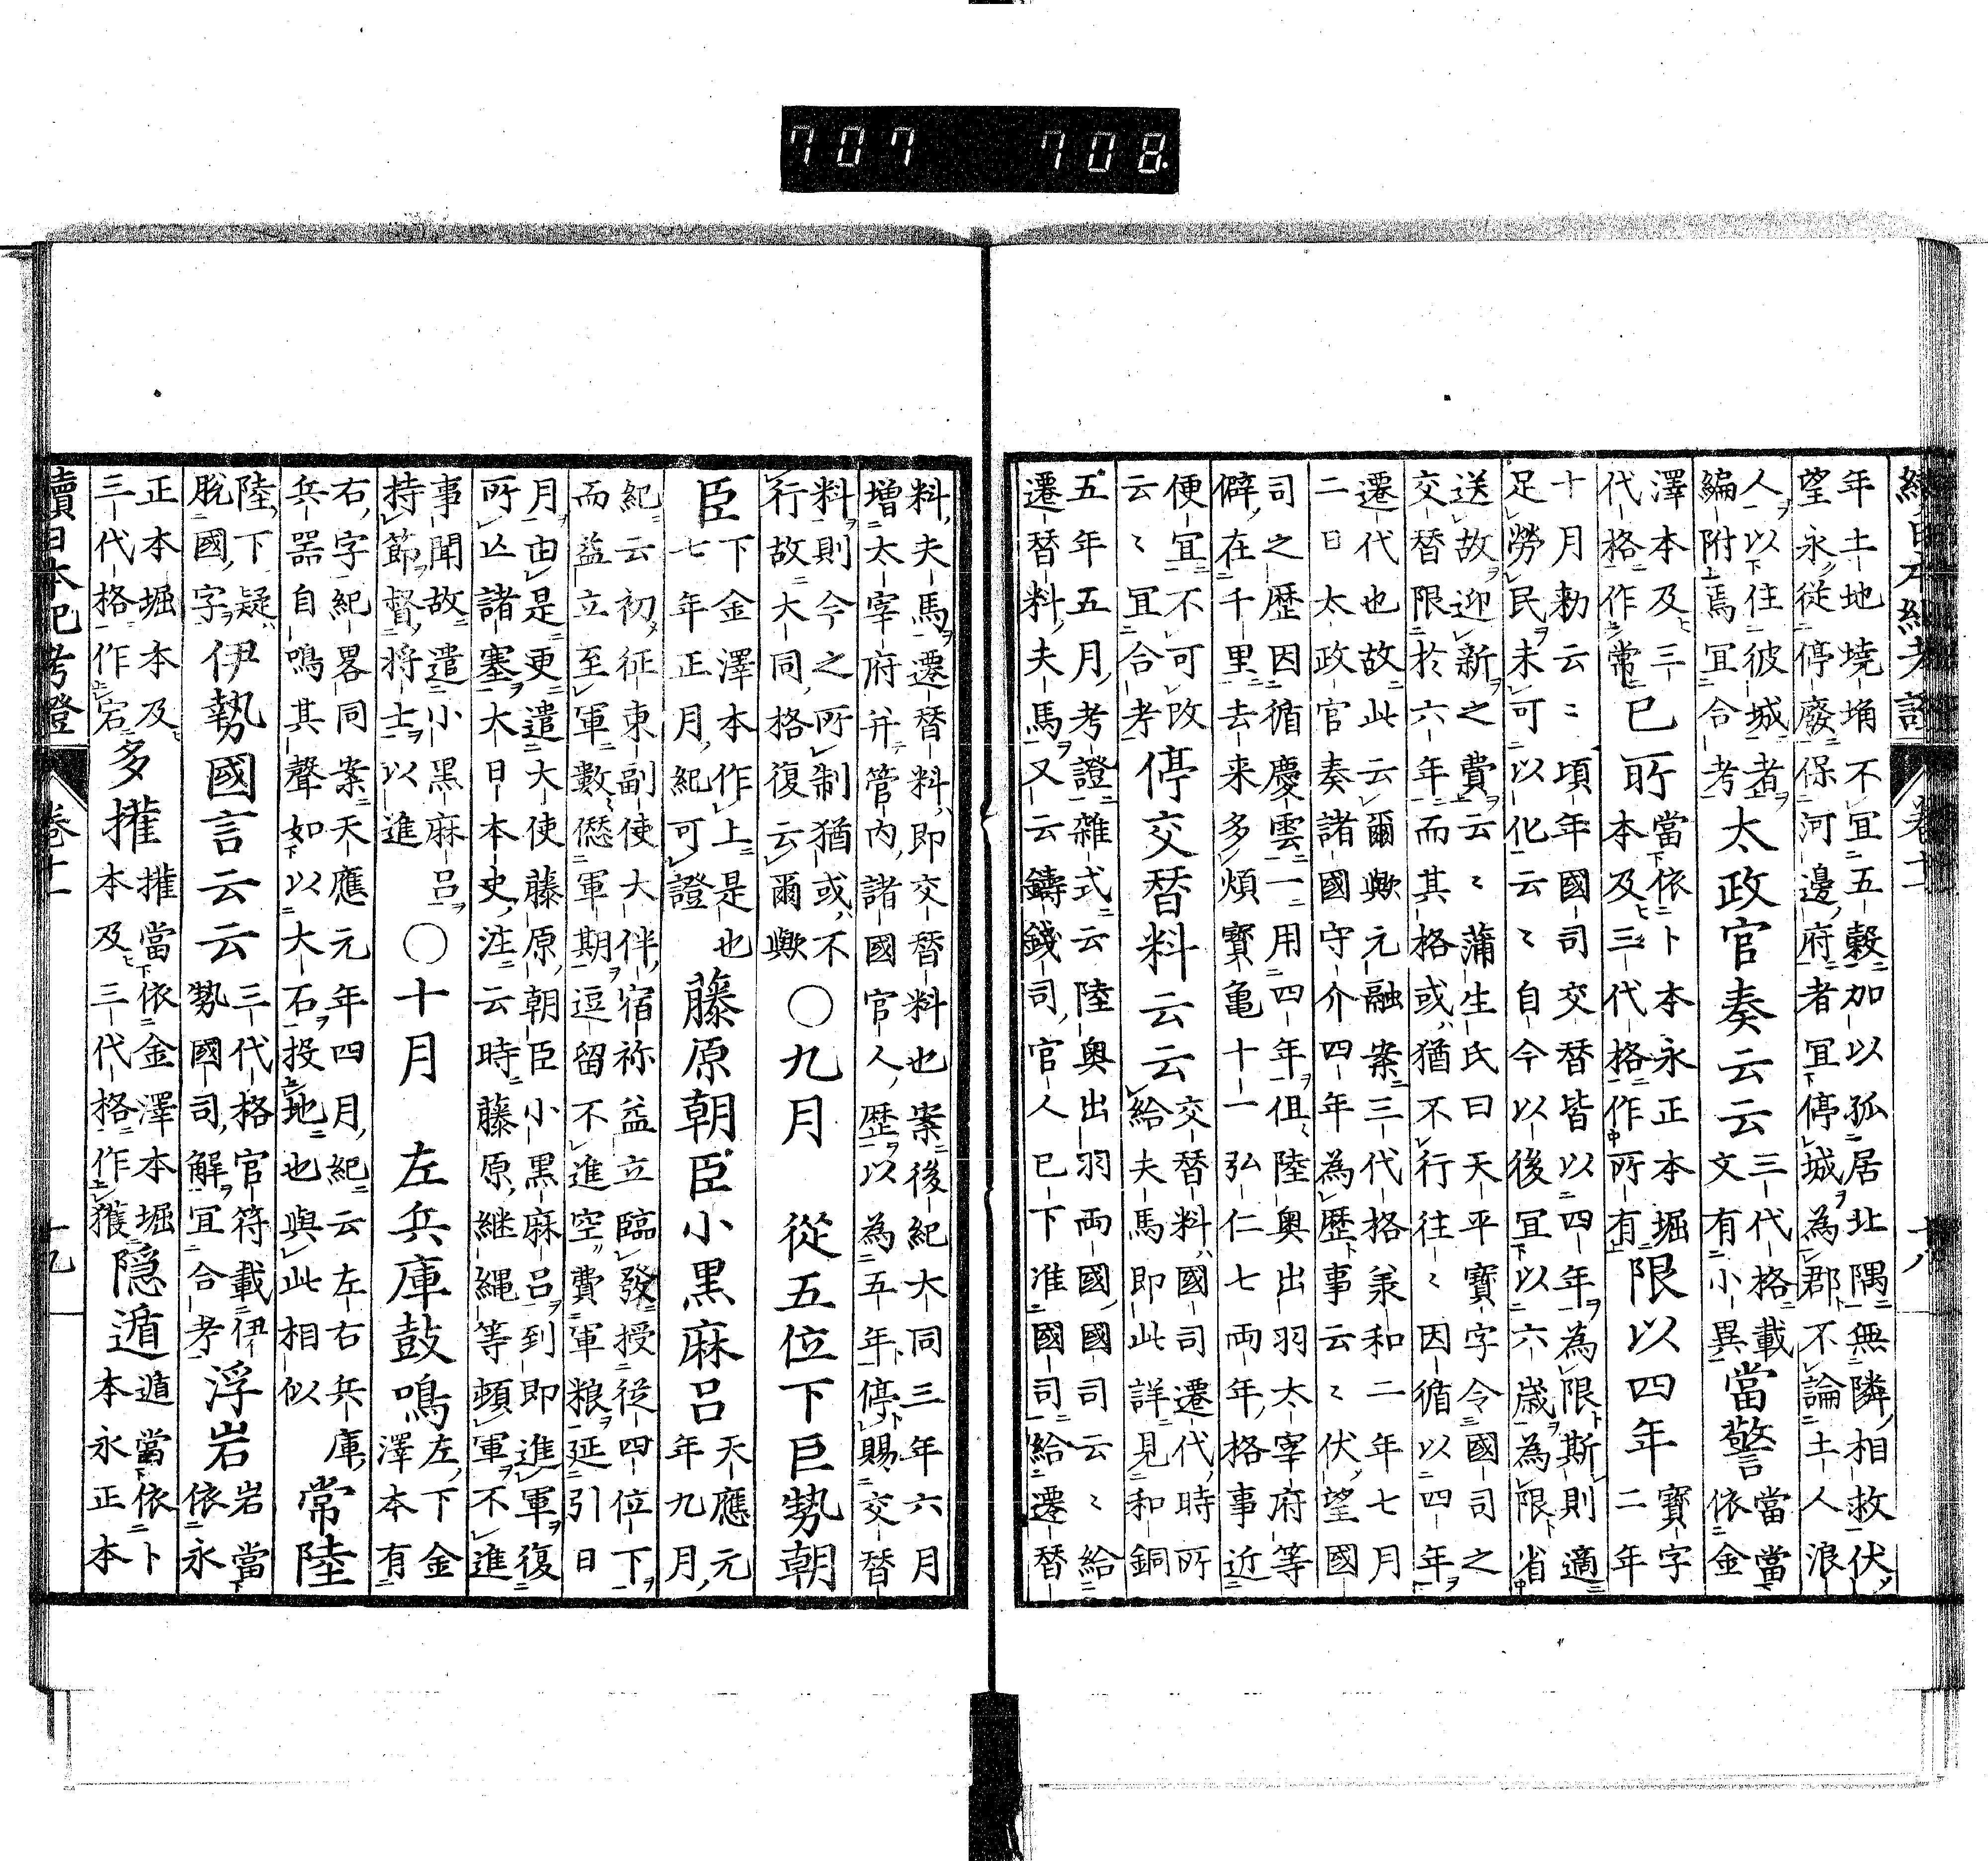 707 708
續日本紀考證 卷十一 十八
年土地墝埆不宜五穀加以孤居北隅無隣相救伏
望永從停廢保河邊府者宜停城為郡不論土人浪
人以住彼城者
編附焉宜合考
太政官奏云云
三代格載
文有小異
當警
當當
依金
澤本及三
代格作常
已所
當依卜本永正本堀
本及三代格作所有
限以四年
寶字
二年
十月勅云〻頃年國司交替皆以四年為限斯則適
足勞民未可以化云〻自今以後宜以六歳為限省
送故迎新之費云〻蒲生氏曰天平寶字令國司之
交替限於六年而其格或猶不行往〻因循以四年
遷代也故此云爾歟元融案三代格羕和二年七月
二日太政官奏諸國守介四年為歴事云〻伏望國
司之歴因循慶雲一用四年但陸奥出羽太宰府等
僻在千里去来多煩寶亀十一弘仁七両年格事近
便宜不可改
云〻宜合考
停交替料云云
交替料國司遷代時所
給夫馬即此詳見和銅
五年五月考證雜式云陸奥出羽両國國司云〻給
遷替料夫馬又云鑄錢司官人已下准國司給遷替
料夫馬遷替料即交替料也案後紀大同三年六月
增太宰府并管內諸國官人歴以為五年停賜交替
料則今之所制猶或不
行故大同格復云爾歟
〇九月 從五位下巨勢朝
臣
下金澤本作上是也
七年正月紀可證
藤原朝臣小黑麻呂
天應元
年九月
紀云初征東副使大伴宿祢益立臨發授從四位下
而益立至軍數〻愆軍期逗留不進空費軍粮延引日
月由是更遣大使藤原朝臣小黑麻呂到即進軍復
所亡諸塞大日本史注云時藤原継縄等頓軍不進
事聞故遣小黑麻呂
持節督將士以進
〇十月 左兵庫鼓鳴
左下金
澤本有
右字紀畧同案天應元年四月紀云左右兵庫
兵器自鳴其聲如以大石投地也與此相似
常陸
陸下疑
脫國字
伊勢國言云云
三代格官符載伊
勢國司解宜合考
浮岩
岩當
依永
正本堀本及
三代格作宕
多攉
攉當依金澤本堀
本及三代格作獲
隱遁
遁當依卜
本永正本
續日本紀考證 卷十一 十九